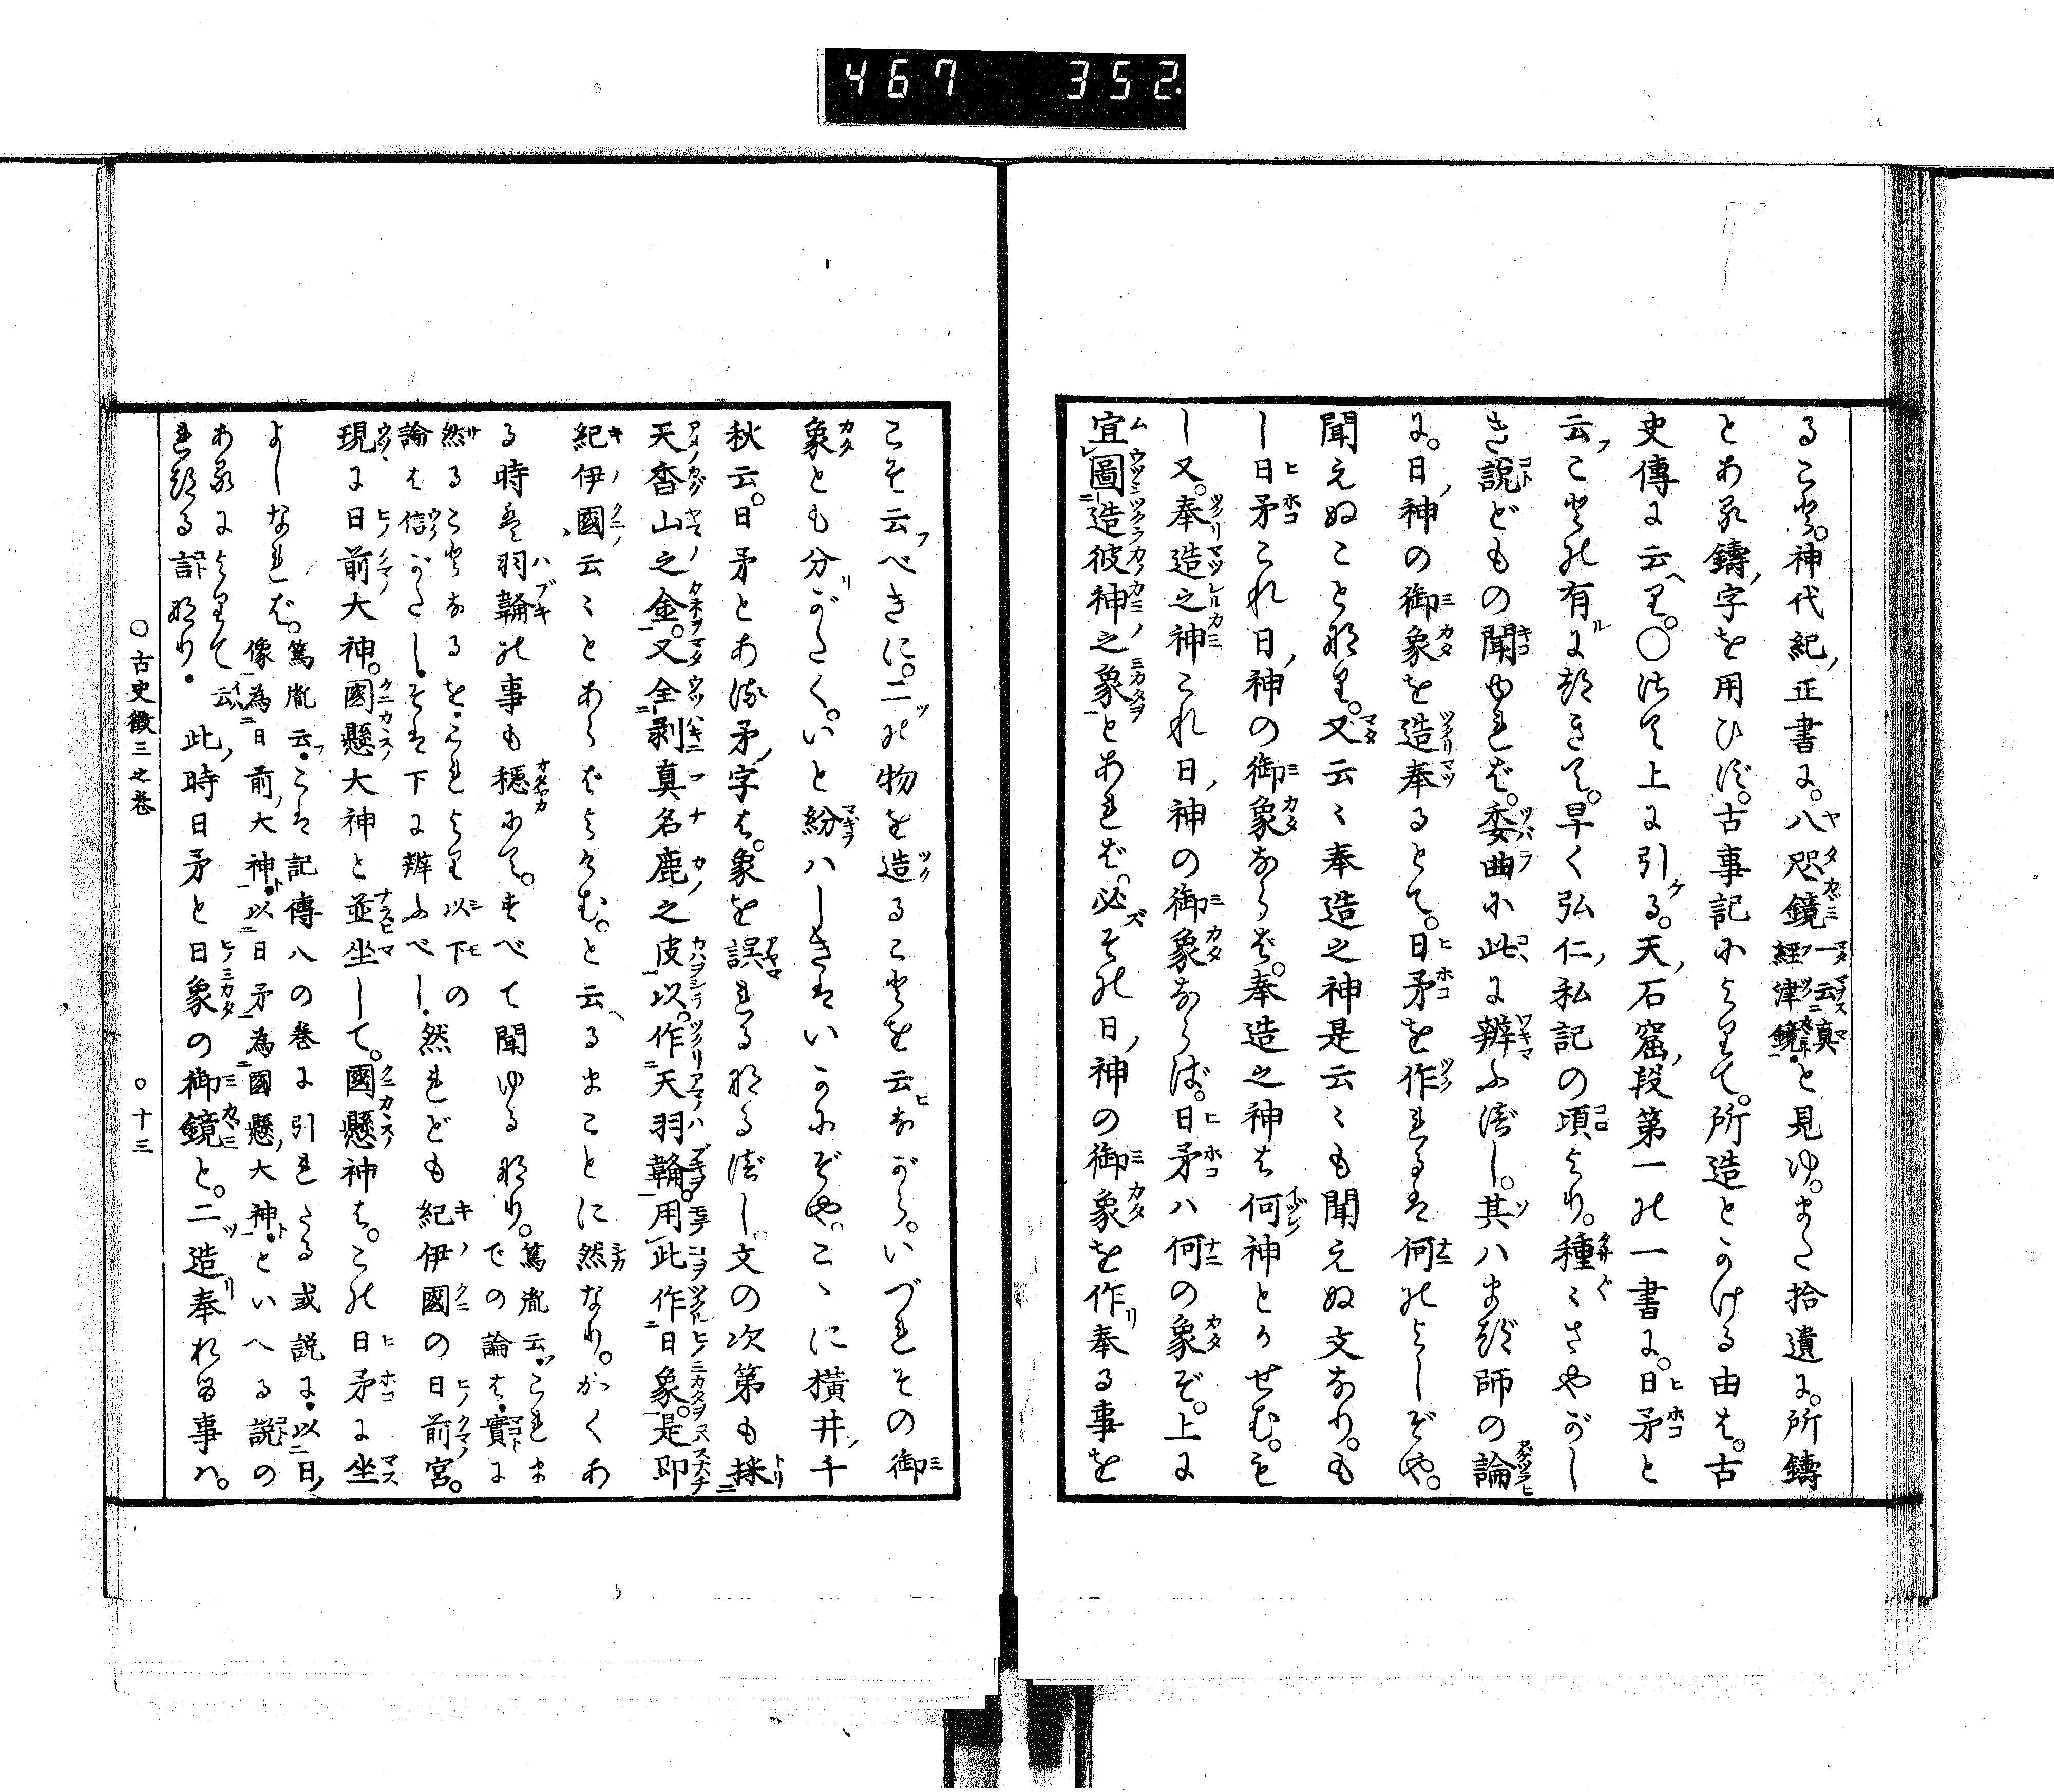 467 352
ること。神代紀正書に。八咫鏡一云真經津鏡。と見ゆ。また拾遺に。所鑄
とある鑄字を用ひず。古事記によりて。所造とかける由は。古
史傳に云り。〇偖上に引る。天石窟段第一の一書に。日矛と
云ことの有につきて。早く弘仁私記の頃より。種〻さやがし
き說どもの聞ゆれど。委曲に此に辨ふべし。其ハまづ師の論
に。日神の御象を造奉るとて。日矛を作れるは何のよしぞや。
聞えぬことなり。又云〻奉造之神是云〻も聞えぬ文なり。も
し日矛これ日神の御象ならば。奉造之神は何神とかせむ。も
し又。奉造之神これ日神の御象ならば。日矛ハ何の象ぞ。上に
宜圖造彼神之象とあれば。必その日神の御象を作奉る事を
こそ云べきに。二の物を造ることを云ながら。いづれその御
象とも分がたく。いと紛ハしきはいかにぞや。こゝに橫井千
秋云。日矛とある矛字は。象を誤れるなるべし。文の次第も採
天香山之金。又全剥真名鹿之皮以。作天羽鞴。用此作日象。是卽
紀伊國云〻とあらばよけむ。と云るまことに然なり。かくあ
る時は羽鞴の事も穩にて。すべて聞ゆるなり。篤胤云。これま
での論は。實に
然ることなるを。これより以下の
論は信がたし。そは下に辨ふべし。然れども紀伊國の日前宮。
現に日前大神。國懸大神と並坐して。國懸神は。この日矛に坐
よしなれば。篤胤云。こは記傳八の巻に引れたる或說に。以日
像為日前大神。以日矛為國懸大神。といへる說の
あるによりて云
れたる言なり。此時日矛と日象の御鏡と。二造奉れる事ハ。
〇古史徵三之巻 〇十三